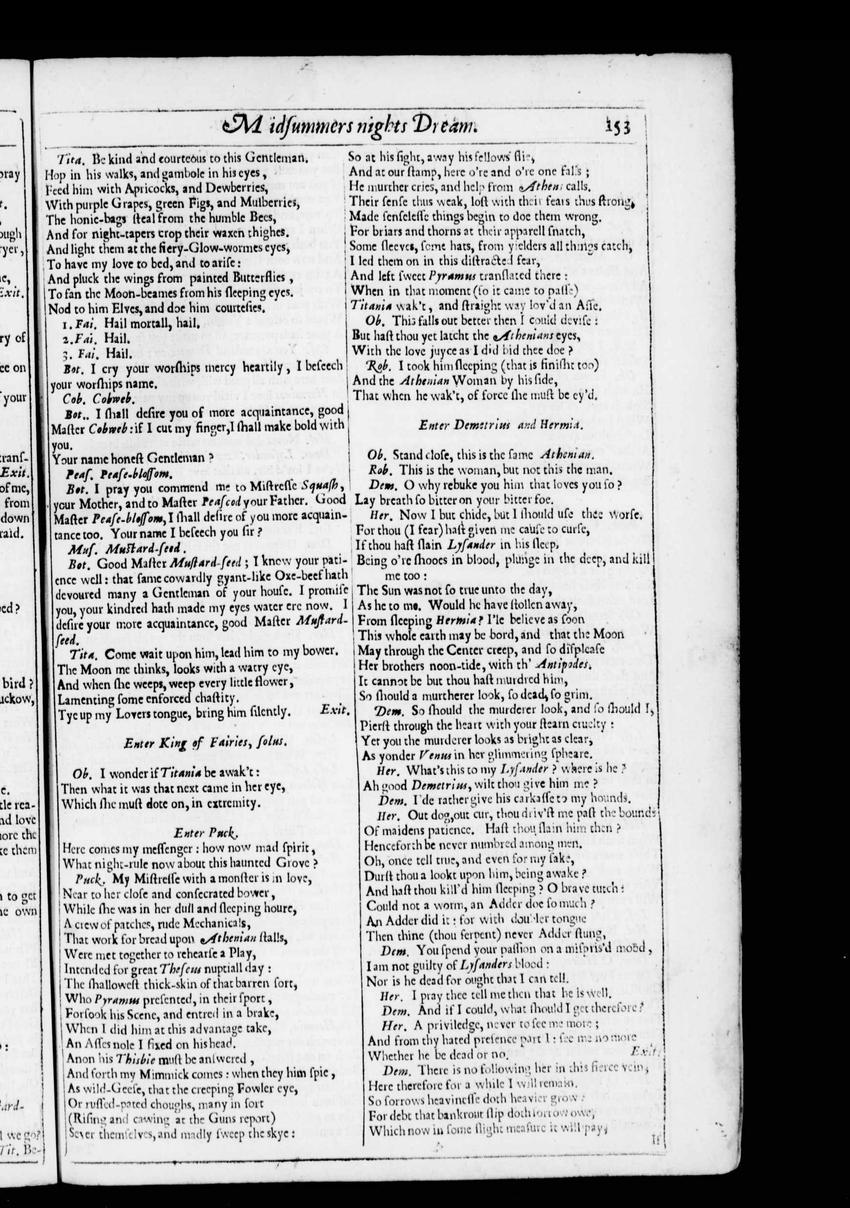 Midsummers nights Dream.
153
Tita. Be kind and courteous to this Gentleman.
Hop in his walks, and gambole in his eyes,
Feed him with Apricocks, and Dewberries,
With purple Grapes, green Figs, and Mulberries,
The honie-bags steal from the humble Bees,
And for night-tapers crop their waxen thighes.
And light them at the fiery-Glow-wormes eyes,
To have my love to bed, and to arise:
And pluck the wings from painted Butterflies,
To fan the Moon-beames from his sleeping eyes.
Nod to him Elves, and doe him courtesies.
1. Fai. Hail mortall, hail.
2. Fai. Hail.
3. Fai. Hail.
Bot. I cry your worships mercy heartily, I beseech
your worships name.
Cob. Cobweb.
Bot.. I shall desire you of more acquaintance, good
Master Cobweb: if I cut my finger, I shall make bold with
you.
Your name honest Gentleman?
Peas. Pease-blossom.
Bot. I pray you commend me to Mistresse Squash,
your Mother, and to Master Peascod your Father. Good
Master Pease-blossom, I shall desire of you more acquain-
tance too. Your name I beseech you sir?
Mus. Mustard-seed.
Bot. Good Master Mustard-seed; I know your pati-
ence well: that same cowardly gyant-like Oxe-beef hath
devoured many a Gentleman of your house. I promise
you, your kindred hath made my eyes water ere now. I
desire your more acquaintance, good Master Mustard-
seed.
Tita. Come wait upon him, lead him to my bower.
The Moon me thinks, looks with a watry eye,
And when she weeps, weep every little flower,
Lamenting some enforced chastity.
Tye up my Lovers tongue, bring him silently. Exit.
Enter King of Fairies, solus.
Ob. I wonder if Titania be awak't:
Then what it was that next came in her eye,
Which she must dote on, in extremity.
Enter Puck.
Here comes my messenger: how now mad spirit,
What night-rule now about this haunted Grove?
Puck. My Mistresse with a monster is in love,
Near to her close and consecrated bower,
While she was in her dull and sleeping houre,
A crew of patches, rude Mechanicals,
That work for bread upon Athenian stalls,
Were met together to rehearse a Play,
Intended for great Theseus nuptiall day:
The shallowest thick-skin of that barren sort,
Who Pyramus presented, in their sport,
Forsook his Scene, and entred in a brake,
When I did him at this advantage take,
An Asses nole I fixed on his head.
Anon his Thisbie must be answered,
And forth my Mimmick comes: when they him spie,
As wild-Geese, that the creeping Fowler eye,
Or russed-pated choughs, many in sort
(Rising and cawing at the Guns report)
Sever themselves, and madly sweep the skye:
So at his sight, away his fellows flie,
And at our stamp, here o're and o're one falls;
He murther cries, and help from Athens calls.
Their sense thus weak, lost with their fears thus strong,
Made senselesse things begin to doe them wrong.
For briars and thorns at their apparell snatch,
Some sleeves, some hats, from yielders all things catch,
I led them on in this distracted fear,
And left sweet Pyramus translated there:
When in that moment (so it came to passe)
Titania wak't, and straight way lov'd an Asse.
Ob. This falls out better then I could devise:
But hast thou yet latcht the Athenians eyes,
With the love juyce as I did bid thee doe?
Rob. I took him sleeping (that is finisht too)
And the Athenian Woman by his side,
That when he wak't, of force she must be ey'd.
Enter Demetrius and Hermia.
Ob. Stand close, this is the same Athenian.
Rob. This is the woman, but not this the man.
Dem. O why rebuke you him that loves you so?
Lay breath so bitter on your bitter foe.
Her. Now I but chide, but I should use thee worse.
For thou (I fear) hast given me cause to curse,
If thou hast slain Lysander in his sleep,
Being o're shooes in blood, plunge in the deep, and kill
me too:
The Sun was not so true unto the day,
As he to me. Would he have stollen away,
From sleeping Hermia? I'le believe as soon
This whole earth may be bord, and that the Moon
May through the Center creep, and so displease
Her brothers noon-tide, with th' Antipodes.
It cannot be but thou hast murdred him,
So should a murtherer look, so dead, so grim.
Dem. So should the murderer look, and so should I,
Pierst through the heart with your stearn cruelty:
Yet you the murderer looks as bright as clear,
As yonder Venus in her glimmering spheare.
Her. What's this to my Lysander? where is he?
Ah good Demetrius, wilt thou give him me?
Dem. I'de rather give his carkasse to my hounds.
Her. Out dog, out cur, thou driv'st me past the bounds
Of maidens patience. Hast thou slain him then?
Henceforth be never numbred among men.
Oh, once tell true, and even for my sake,
Durst thou a lookt upon him, being awake?
And hast thou kill'd him sleeping? O brave tutch:
Could not a worm, an Adder doe so much?
An Adder did it: for with doubler tongue
Then thine (thou serpent) never Adder stung,
Dem. You spend your passion on a mispris'd mood,
I am not guilty of Lysanders blood:
Nor is he dead for ought that I can tell.
Her. I pray thee tell me then that he is well.
Dem. And if I could, what should I get therefore?
Her. A priviledge, never to see me more;
And from thy hated presence part I: see me no more
Whether he be dead or no. Exit.
Dem. There is no following her in this fierce vein,
Here therefore for a while I will remain.
So sorrows heavinesse doth heavier grow:
For debt that bankrout slip doth sorrow owe,
Which now in some slight measure it will pay,
If